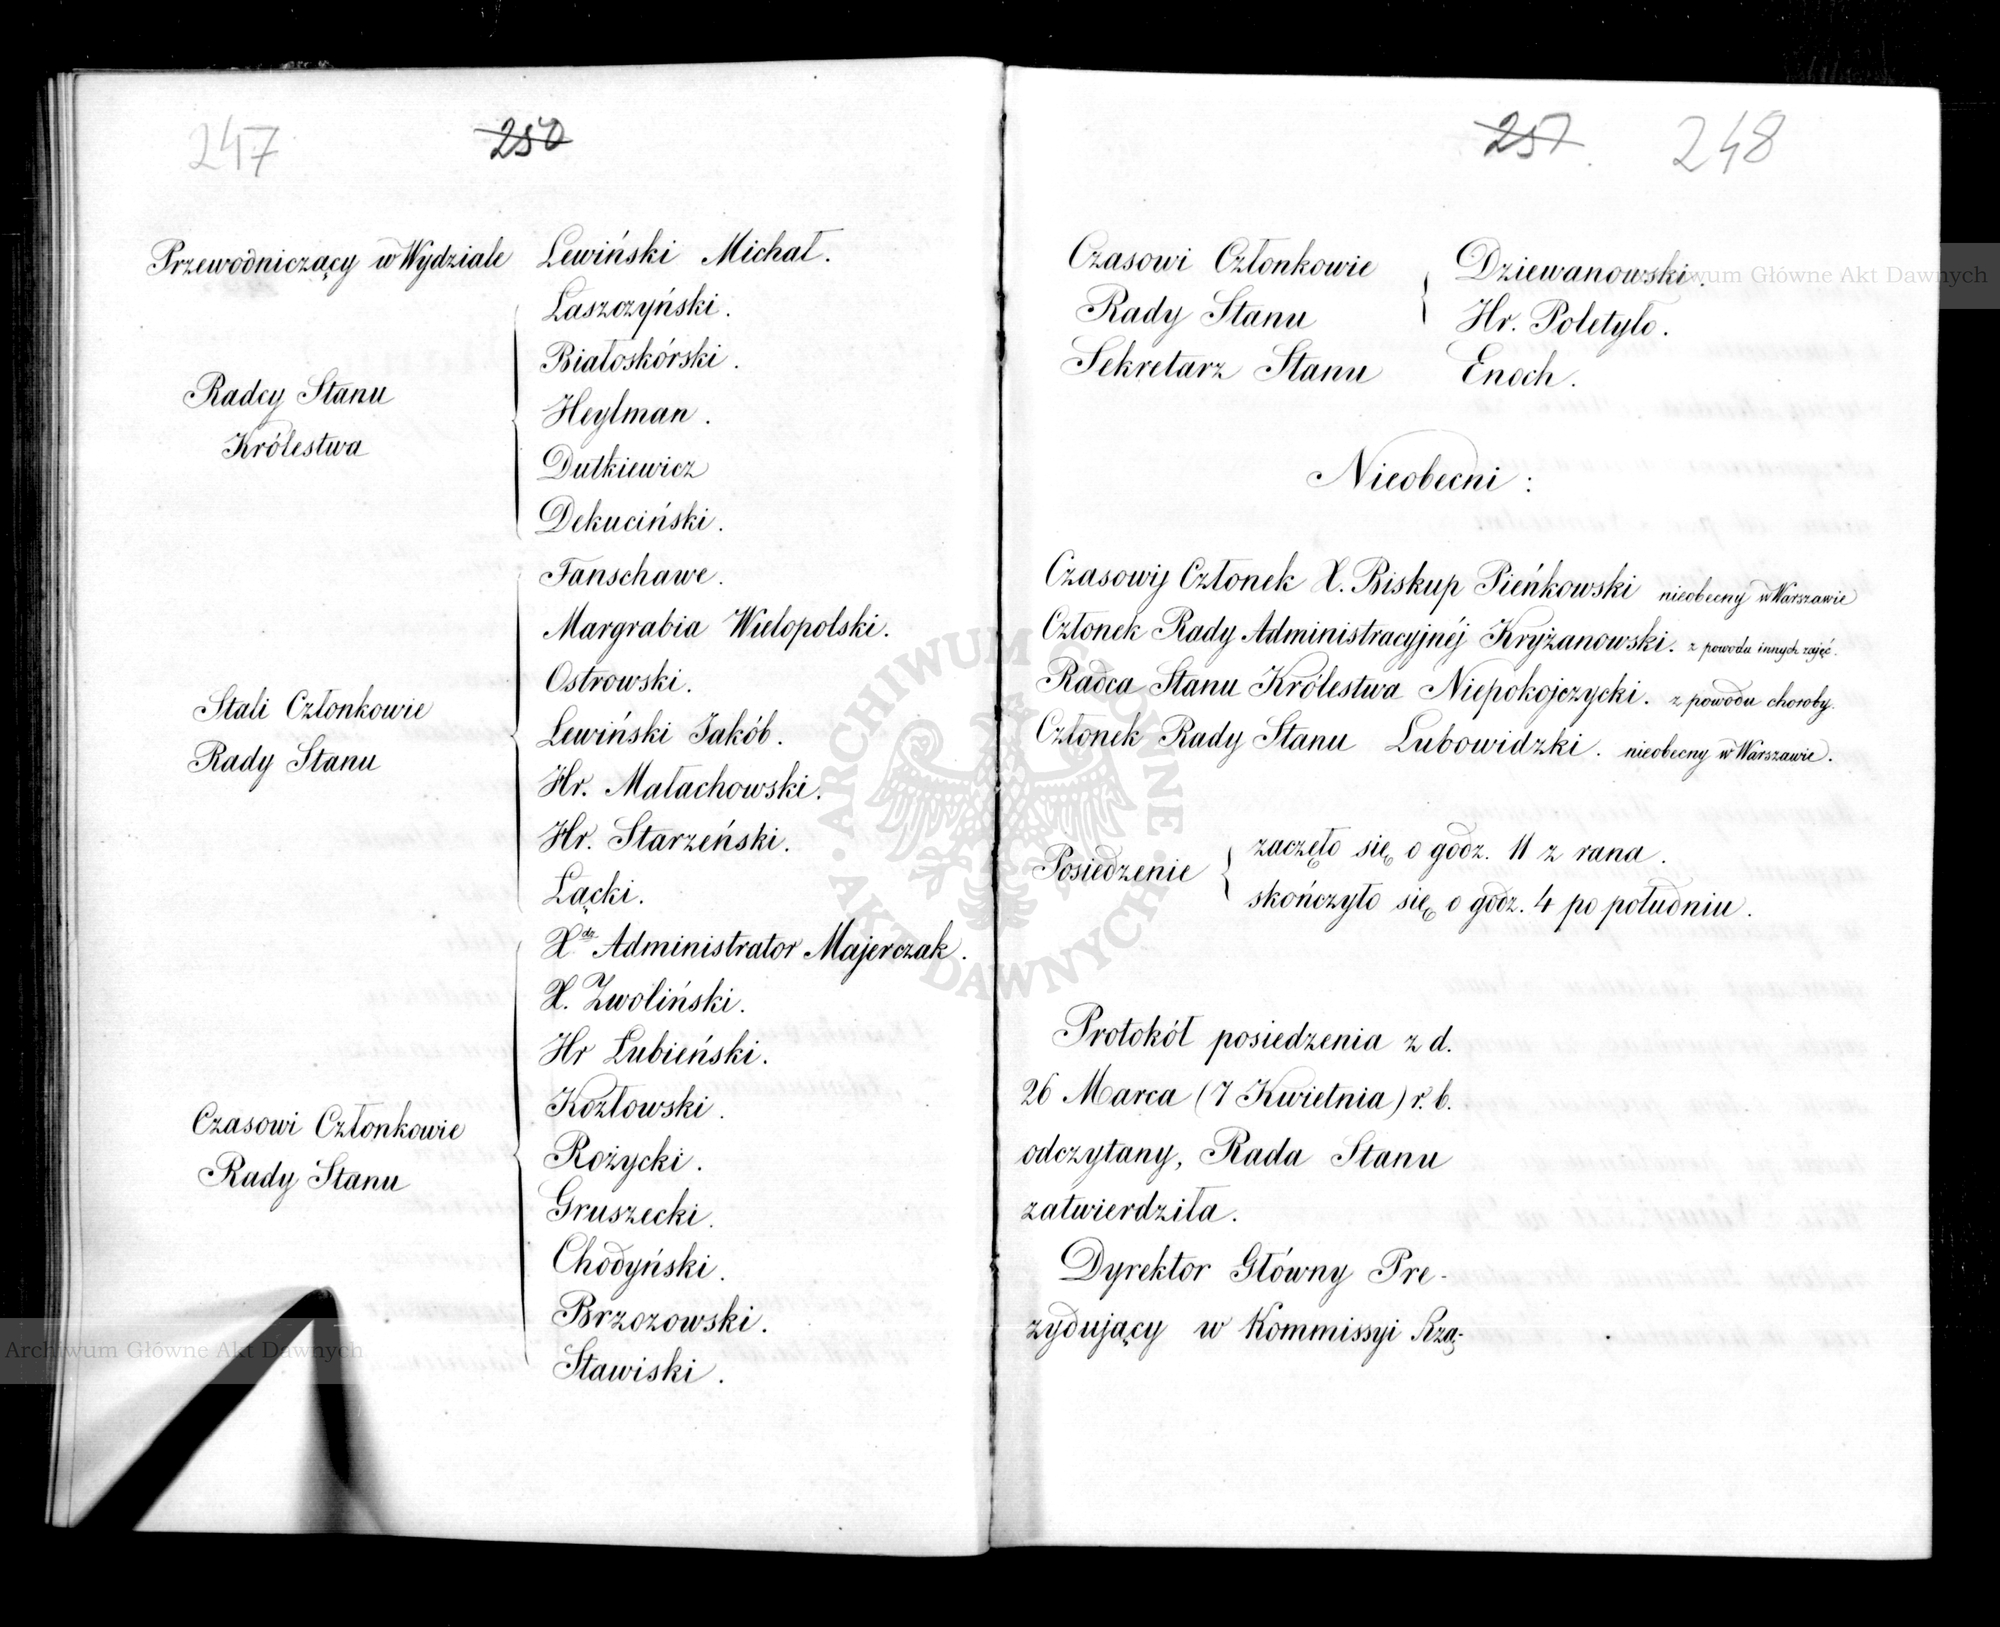 247 250
Przewodniczący w Wydziale Lewiński Michał.
Łaszczyński.
Białoskórski.
Radcy Stanu
Królestwa
Heylman.
Dutkiewicz
Dekuciński.
Fanschawe.
Margrabia Wielopolski.
Ostrowski.
Stali Członkowie
Rady Stanu
Lewiński Jakób.
Hr. Małachowski.
Hr. Starzeński.
Łącki.
Xdz Administrator Majerczak.
X. Zwoliński.
Hr Łubieński.
Czasowi Członkowie
Rady Stanu
Kozłowski.
Rożycki.
Gruszecki.
Chodyński.
Brzozowski.
Stawiski.
251. 248
Czasowi Członkowie
Rady Stanu
Dziewanowski.
Hr. Poletyło.
Sekretarz Stanu Enoch.
Nieobecni:
Czasowy Członek X. Biskup Pieńkowski nieobecny w Warszawie
Członek Rady Administracyjnéj Kryżanowski. z powodu innych zajęć.
Radca Stanu Królestwa Niepokojczycki. z powodu choroby.
Członek Rady Stanu Lubowidzki. nieobecny w Warszawie.
Posiedzenie
zaczęło się o godz. 11 z rana.
skończyło się o godz. 4 po południu.
Protokół posiedzenia z d.
26 Marca (7 Kwietnia) r. b.
odczytany, Rada Stanu
zatwierdziła.
Dyrektor Główny Pre-
zydujący w Kommissyi Rzą-
Archiwum Główne Akt Dawnych
Archiwum Główne Akt Dawnych
ARCHIWUM GŁÓWNE AKT DAWNYCH